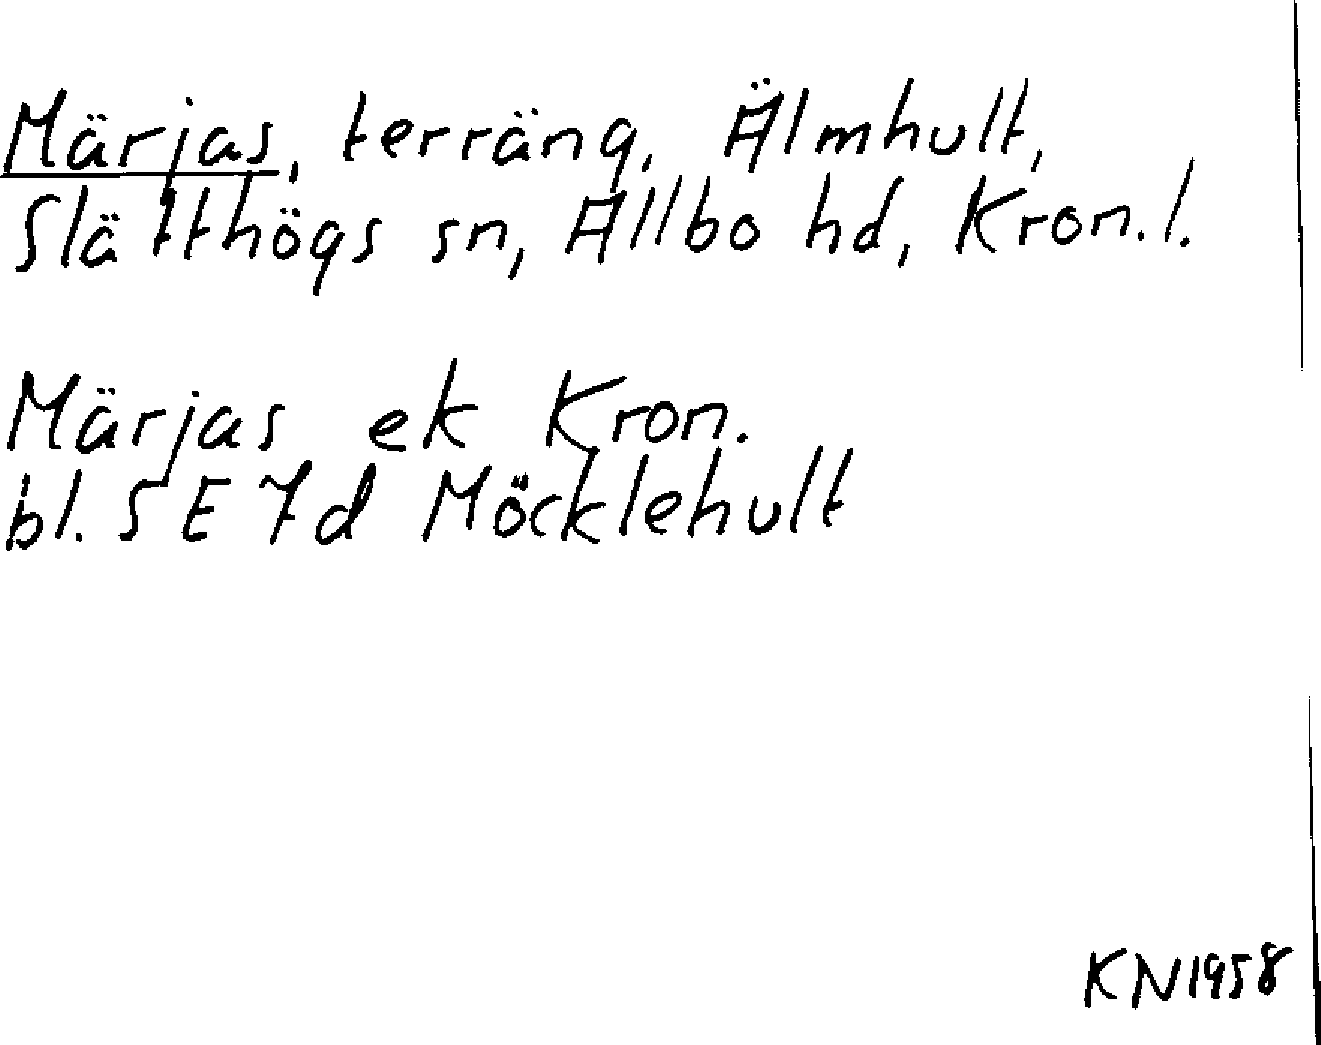 Märjas, terräng, Älmhult,
Slätthögs sn, Allbo hd, Kron.l.
Märjas ek Kron.
bl. 5 E 7d Möcklehult
KN1958